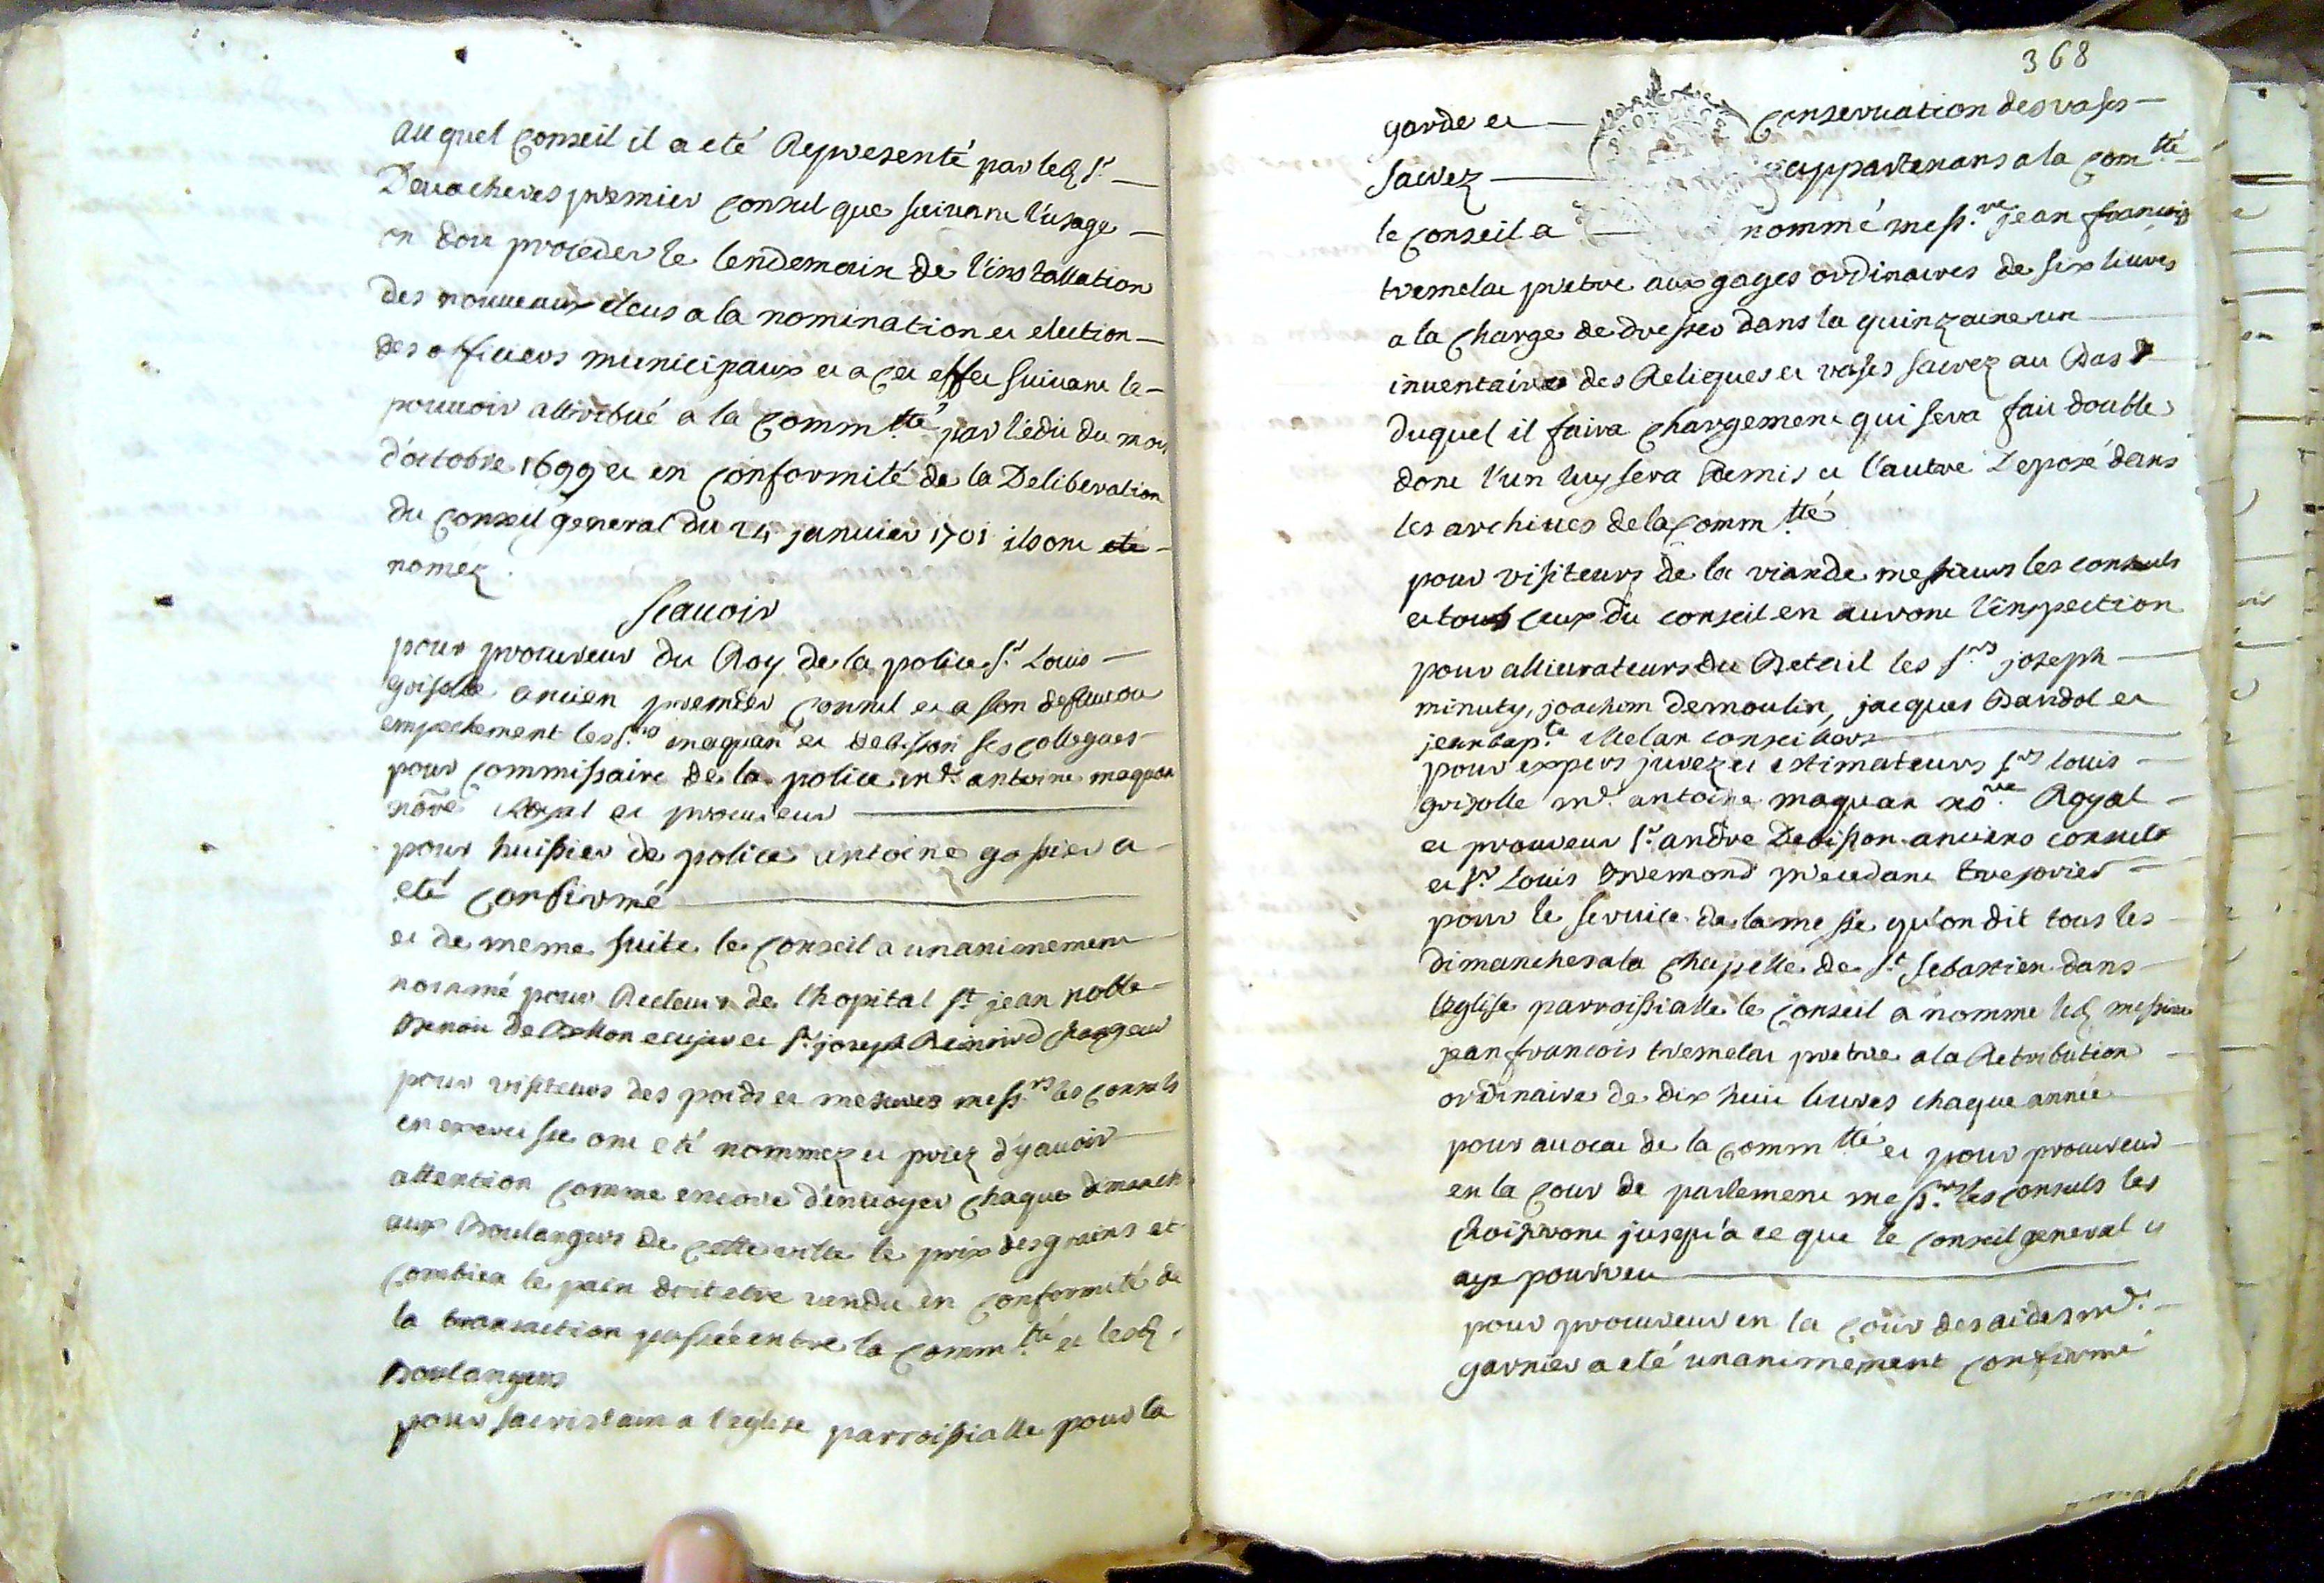 auquel Conseil il a eté Representé par led. Sr.
Devacheres premier Consul que suivant l'usage
on doit proceder le lendemain de l'installation
des nouveaux eleus a la nomination et election
des officiers municipaux et a cet effet suivant le
pouvoir attribué a la Commtté par l'édit du mois
d'octobre 1699 et en Conformité de la Deliberation
du Conseil general du 24 janvier 1701 ils ont eté
nomez.
Scavoir
pour procureur du Roy de la police Sr. Louis
grisolle ancien premier Consul et a son deffaut ou
empechement les Srs maquan et Debisson ses collegues
pour Commissaire de la police me. antoine maquan
nore Royal et procureur
pour huissier de police antoine gassier a
eté Confirmé
et de meme suite le Conseil a unanimement
nommé pour Recteurs de l'hopital St jean noble
Benoit de ecuyer et Sr. joseph
pour visiteurs des poids et mesures messrs les Consuls
en exercisse ont eté nommez et priez d'y avoir
attention Comme encore d'envoyer Chaque dimanche
aux Boulangers de Cette ville le prix des grains et
Combien le pain doit etre vendu en Conformité de
la transaction passée entre la Commtté et lesd.
Boulangers
pour sacristain a l'eglise parroissialle pour la
368
garde et Conservation des vases
sacrez appartenans a la Comtté
le Conseil a nommé messre jean francois
tremelat pretre aux gages ordinaires de six livres
a la Charge de dresser dans la quinzaine un
inventaire des Reliques et vases sacrez au Bas
duquel il faira Chargement qui sera fait double
dont l'un luy sera Remis et l'autre Deposé dans
les archives de la Commtté
pour visiteurs de la viande messieurs les consuls
et tous Ceux du conseil en auront l'inspection
pour allieurateurs du Betail les Srs joseph
minuty, joachim demoulin, jacques Bardol et
jean bapte Melan conseillers
pour expers jurez et estimateurs Srs louis
grisolle me. antoine maquan nore Royal
et procureur Sr. andre Debisson anciens consuls
et Sr Louis Tremond precedant tresorier
pour le service de la messe qu'on dit tous les
dimanches a la Chapelle de St Sebastien dans
l'eglise parroissialle le Conseil a nomme led. messire
jean francois tremelat pretre a la Retribution
ordinaire de dix huit livres chaque année
pour avocat de la Commtté et pour procureur
en la Cour de parlement messrs les consuls les
Choisiront jusqu'a ce que le conseil general y
aye pourveu
pour procureur en la Cour des aides me.
garnier a eté unanimement Confirmé